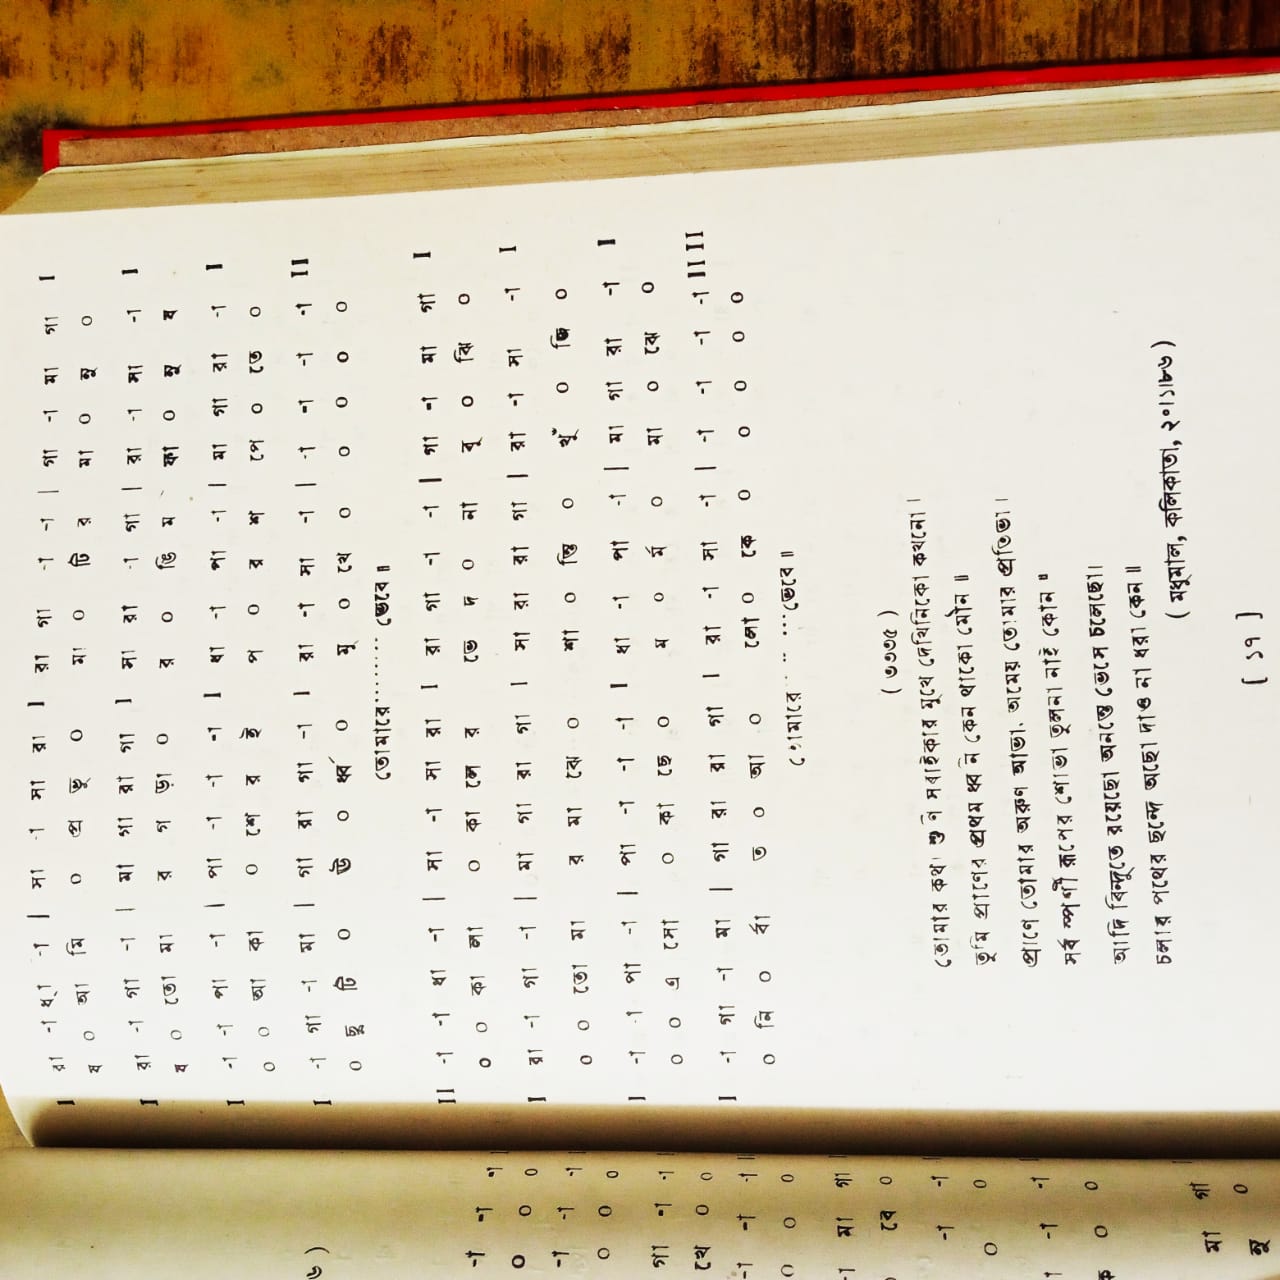 I রা -া ধ্া -া | সা -া সা রা I রা গা -া -া | গা -া মা গা I
য ০ আ মি ০ প্র ভু ০ মা ০ টি র মা ০ নু ০
I রা -া গা -া | মা গা রা গা I সা রা -া গা | রা -া সা -া I
য ০ তো মা র গ ড়া ০ র ০ ঙি ম ফা ০ নু ষ
I -া -া পা -া | পা -া -া -া I ধা -া পা -া | মা গা রা -া I
০ ০ আ কা ০ শে র ই প ০ র শ পে ০ তে ০
I -া গা -া মা | গা রা গা -া I রা -া সা -া | -া -া -া -া II
০ ছু টি ০ উ ০ র্ধ্ব ০ মু ০ খে ০ ০ ০ ০ ০
তোমারে········ ভেবে॥
II -া -া ধা -া | সা -া সা রা I রা গা -া -া | গা -া মা গা I
০ ০ কা লা ০ কা লে র ভে দ ০ না বু ০ ঝি ০
I রা -া গা -া | মা গা রা গা I সা রা রা গা | রা -া সা -া I
০ ০ তো মা র মা ঝে ০ শা ০ ন্তি ০ খুঁ ০ জি ০
I -া -া পা -া | পা -া -া -া I ধা -া পা -া | মা গা রা -া I
০ ০ এ সো ০ কা ছে ০ ম ০ র্ম ০ মা ০ ঝে ০
I -া গা -া মা | গা রা রা গা I রা -া সা -া | -া -া -া -া II II
০ নি ০ র্বা ত ০ আ ০ লো ০ কে ০ ০ ০ ০ ০
তোমারে·· ·· ···ভেবে॥
( ৩৩৩৫ )
তোমার কথা শুনি সবাইকার মুখে দেখিনিকো কখনো।
তুমি প্রাণের প্রথম ধ্বনি কেন থাকো মৌন॥
প্রাণে তোমার অরুণ আভা, অমেয় তোমার প্রতিভা।
সর্ব স্পর্শী রূপের শোভা তুলনা নাই কোন॥
আদি বিন্দুতে রয়েছো অনন্তে ভেসে চলেছো।
চলার পথের ছন্দে অছো দাও না ধরা কেন॥
( মধুমাল, কলিকাতা, ২০।১।৮৬ )
[ ১৭ ]